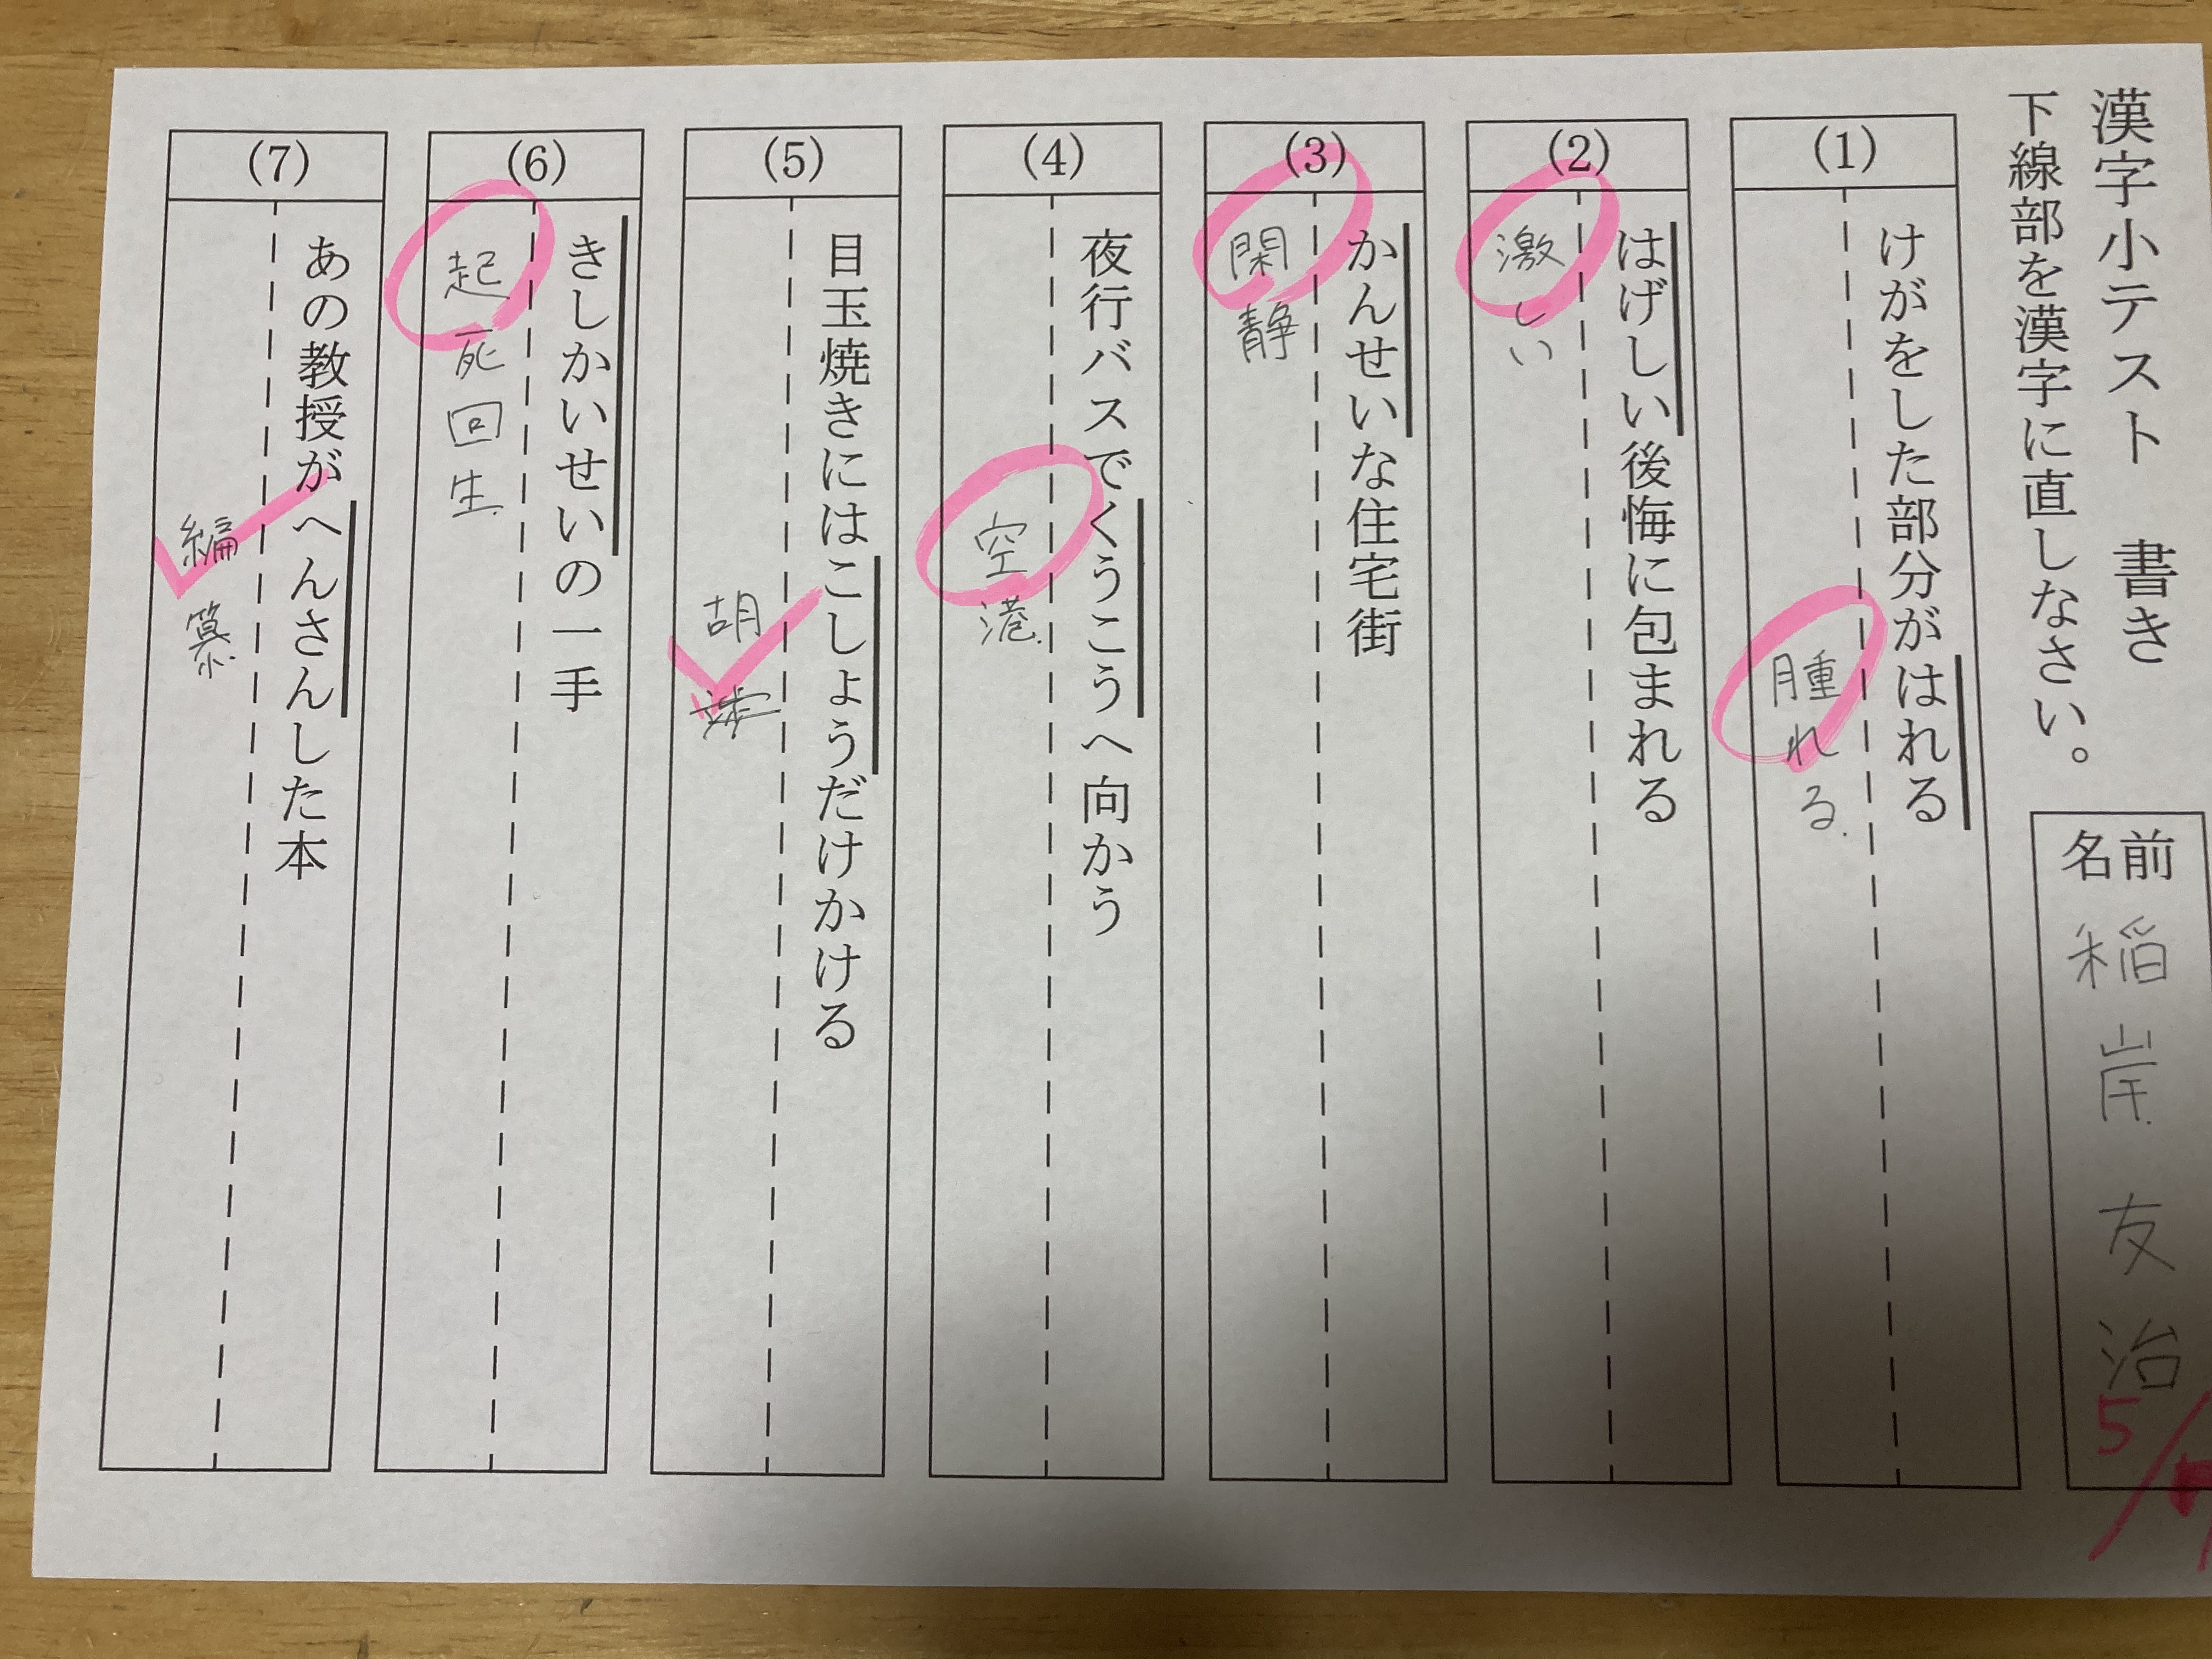 漢字小テスト 書き
下線部を漢字に直しなさい。
名前 稲岸友治
5/7
(1)
けがをした部分がはれる
腫れる
(2)
はげしい後悔に包まれる
激しい
(3)
かんせいな住宅街
閑静
(4)
夜行バスでくうこうへ向かう
空港
(5)
目玉焼きにはこしょうだけかける
胡
(6)
きしかいせいの一手
起死回生
(7)
あの教授がへんさんした本
編